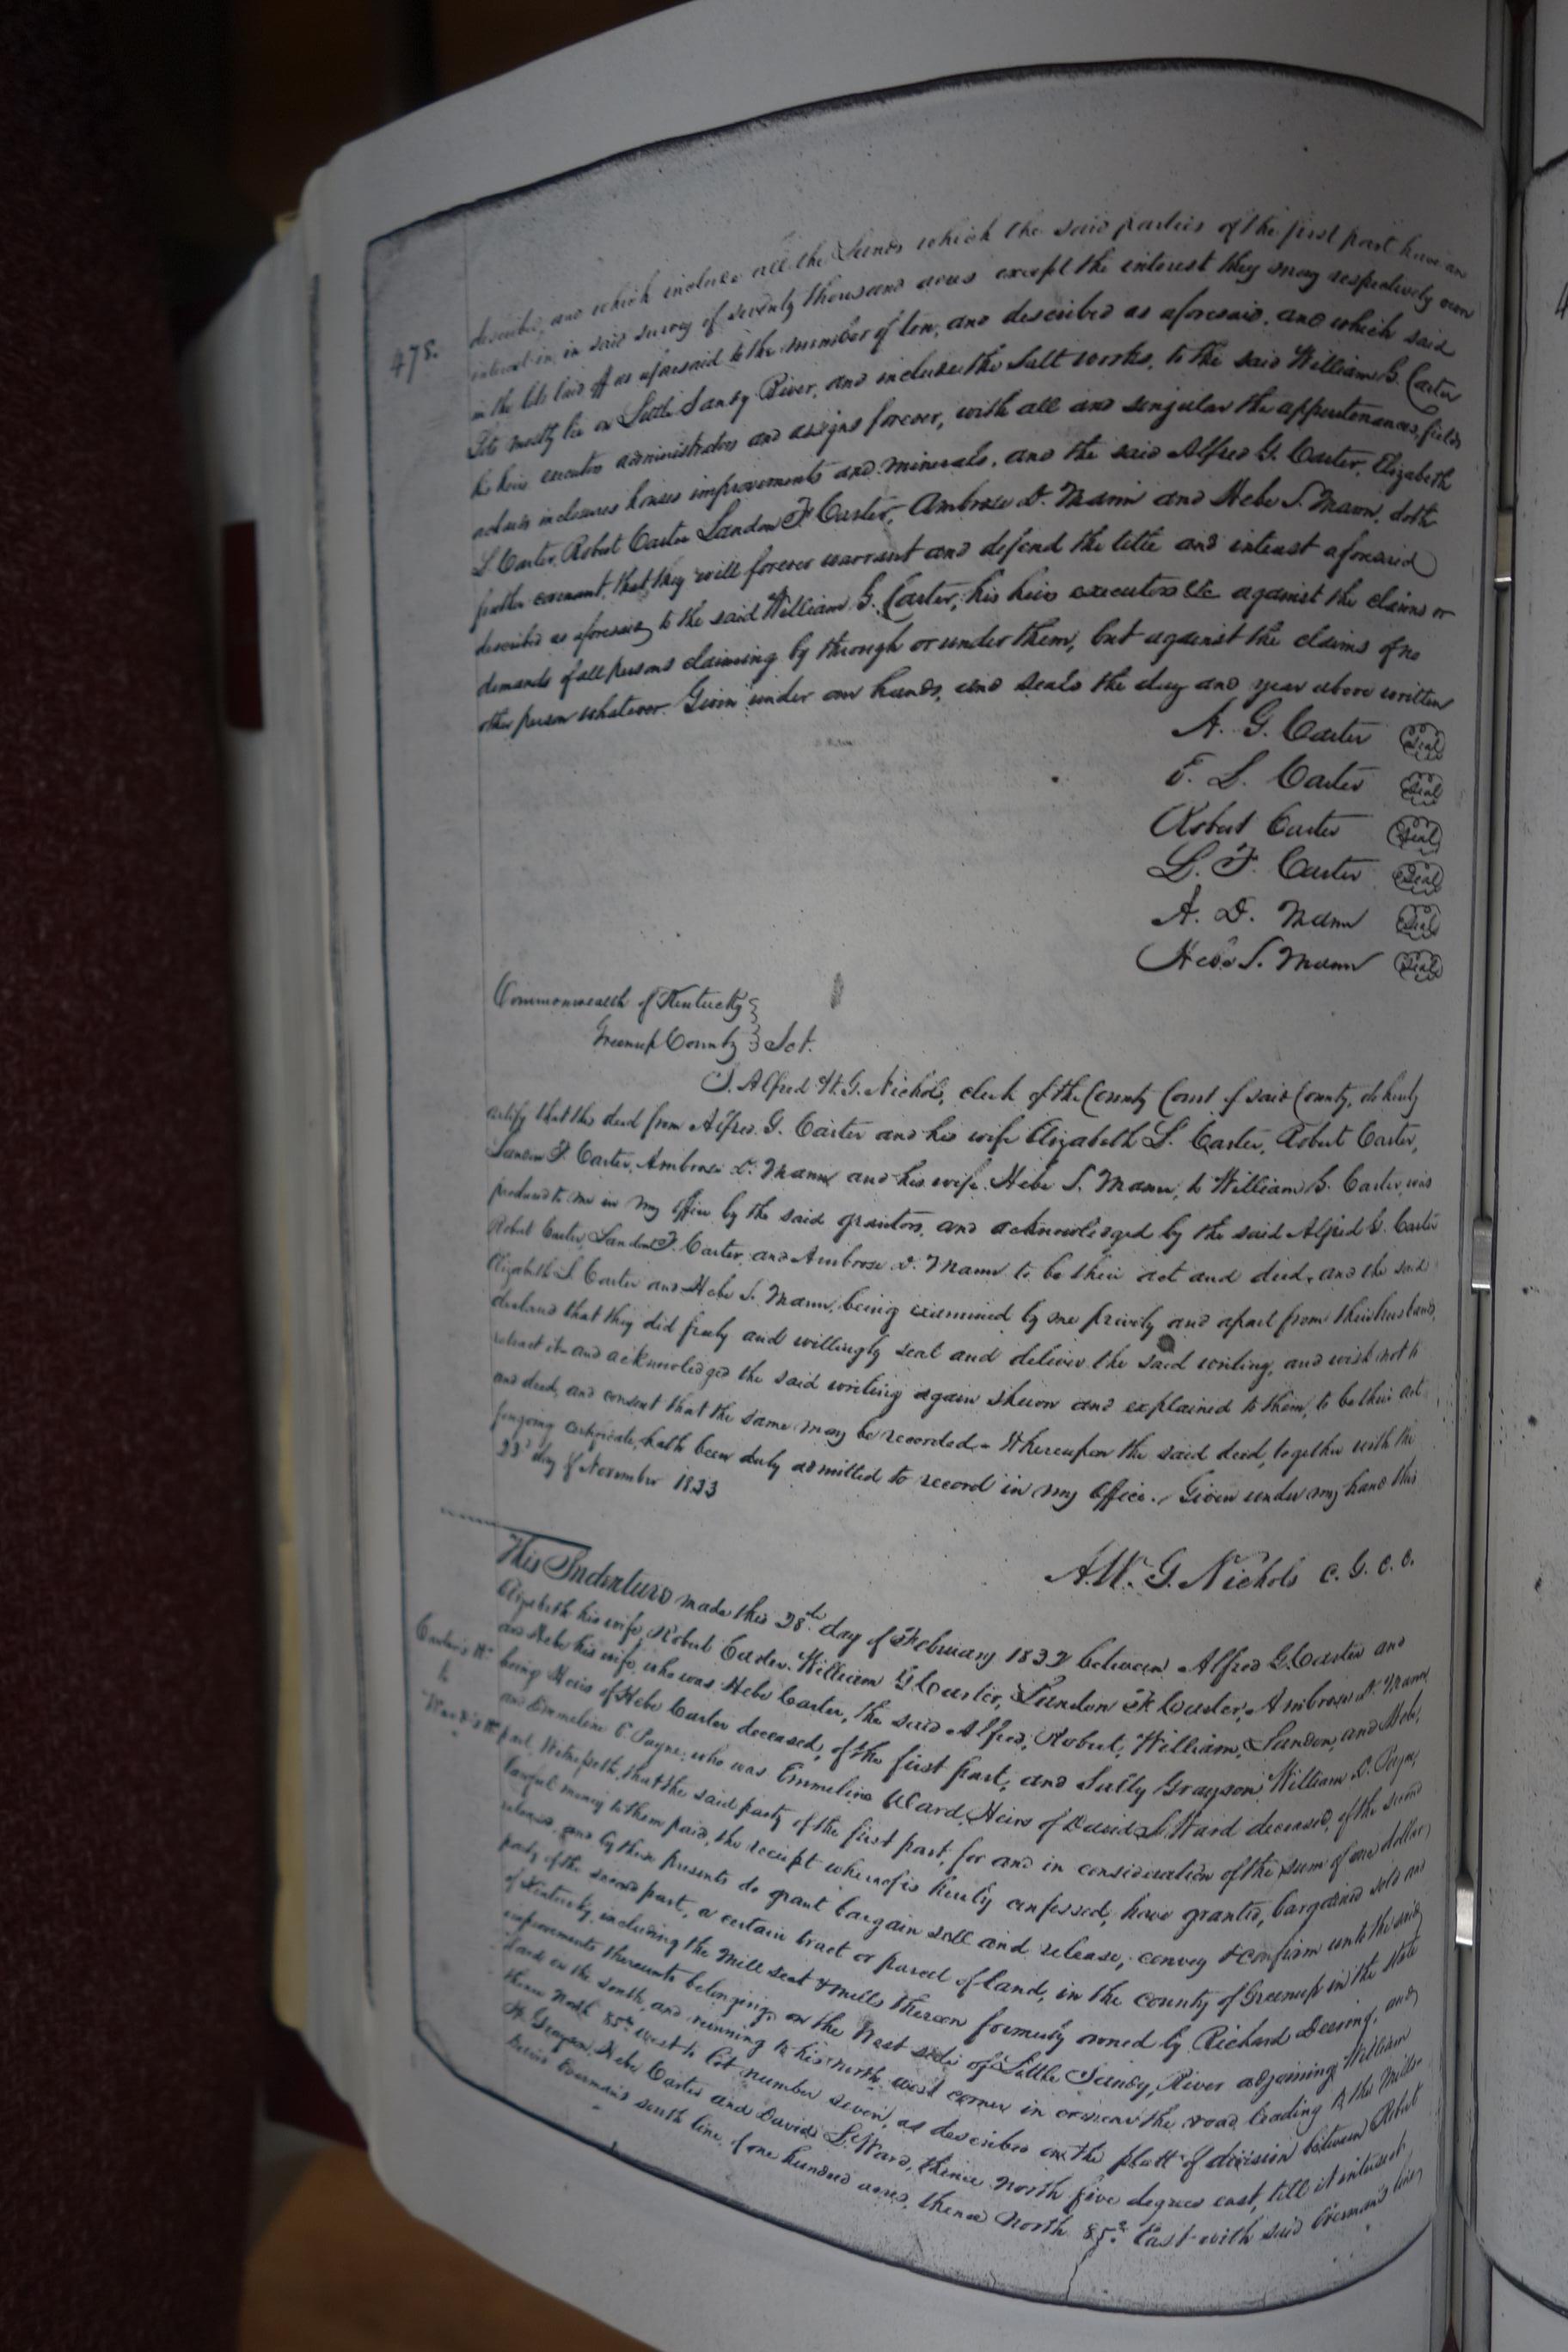 478.
described, and which include all the Lands which the said parties of the first part have an
interest in, in said survey of seventy thousand acres except the interest they may respectively own
in the lots laid off as aforesaid to the number of ten, and described as aforesaid, and which said
Lots mostly lie on Little Sandy River, and includes the Salt works, to the said William G. Carter
his heirs executors administrators and assigns forever, with all and singular the appurtenances, fields
inclosures houses improvements and minerals. and the said Alfred G. Carter, Elizabeth
L Carter, Robert Carter Landon F Carter, Ambrose D. Mann and Hebe S. Mann, doth
further covenant, that they will forever warrant and defend the title and interest aforesaid
described as aforesaid to the said William G. Carter, his heirs executors &c against the claims or
demands of all persons claiming by through or under them, but against the claims of no
other person whatever. Given under our hands, and seals the day and year above written
A. G. Carter Seal
E. L. Carter Seal
Robert Carter Seal
L. F. Carter Seal
A. D. Mann Seal
Hebe S. Mann Seal
Commonwealth of Kentucky
Greenup County Sct.
I. Alfred W. G. Nichols, clerk of the County Court of said County, do hereby
certify that this deed from Alfred G. Carter and his wife Elizabeth L. Carter, Robert Carter,
Landon F. Carter, Ambrose D. Mann and his wife Hebe S. Mann, to William G. Carter, was
produced to me in my office by the said grantors, and acknowledged by the said Alfred G. Carter
Robert Carter, Landon F. Carter, and Ambrose D. Mann to be their act and deed, and the said
Elizabeth L Carter and Hebe S. Mann, being examined by me privily and apart from their husbands,
declared that they did freely and willingly seal and deliver the said writing, and wish not to
retract it and acknowledged the said writing again shewn and explained to them, to be their act
and deed, and consent that the same may be recorded. Whereupon the said deed, together with the
foregoing certificate, hath been duly admitted to record in my Office. Given under my hand this
23d day of November 1833
A. W. G. Nichols C. G. C. C.
This Indenture made this 28th day of February 1832 between Alfred G. Carter and
Elizabeth his wife, Robert Carter, William G Carter, Landon F. Carter, Ambrose D. Mann
and Hebe his wife, who was Hebe Carter, the said Alfred, Robert, William, Landon, and Hebe,
Carter's Hs
to
Ward's Hs
being Heirs of Hebe Carter deceased, of the first part, and Sally Grayson, William D. Payne,
and Emmeline C. Payne, who was Emmeline Ward, Heirs of David L. Ward deceased, of the second
part, Witnesseth, that the said party of the first part, for and in consideration of the sum of one dollar
lawful money to them paid, the receipt whereof is hereby confessed, have granted, bargained sold and
released, and by these presents do grant bargain sell and release, convey & confirm unto the said
party of the second part, a certain tract or parcel of land, in the county of Greenup in the state
of Kentucky, including the Mill seat & mills thereon formerly owned by Richard Deering, and
improvements thereunto belonging, on the West side of Little Sandy, River adjoining William
Land on the south, and running to his north west corner in or near the road leading to the Mills
thence North 85° west to lot number seven, as described on the platt of division between Robert
H. Grayson, Hebe Carter and David L. Ward, thence North five degrees east, till it intersect
south line, of one hundred acres, thence North 85° East with said line